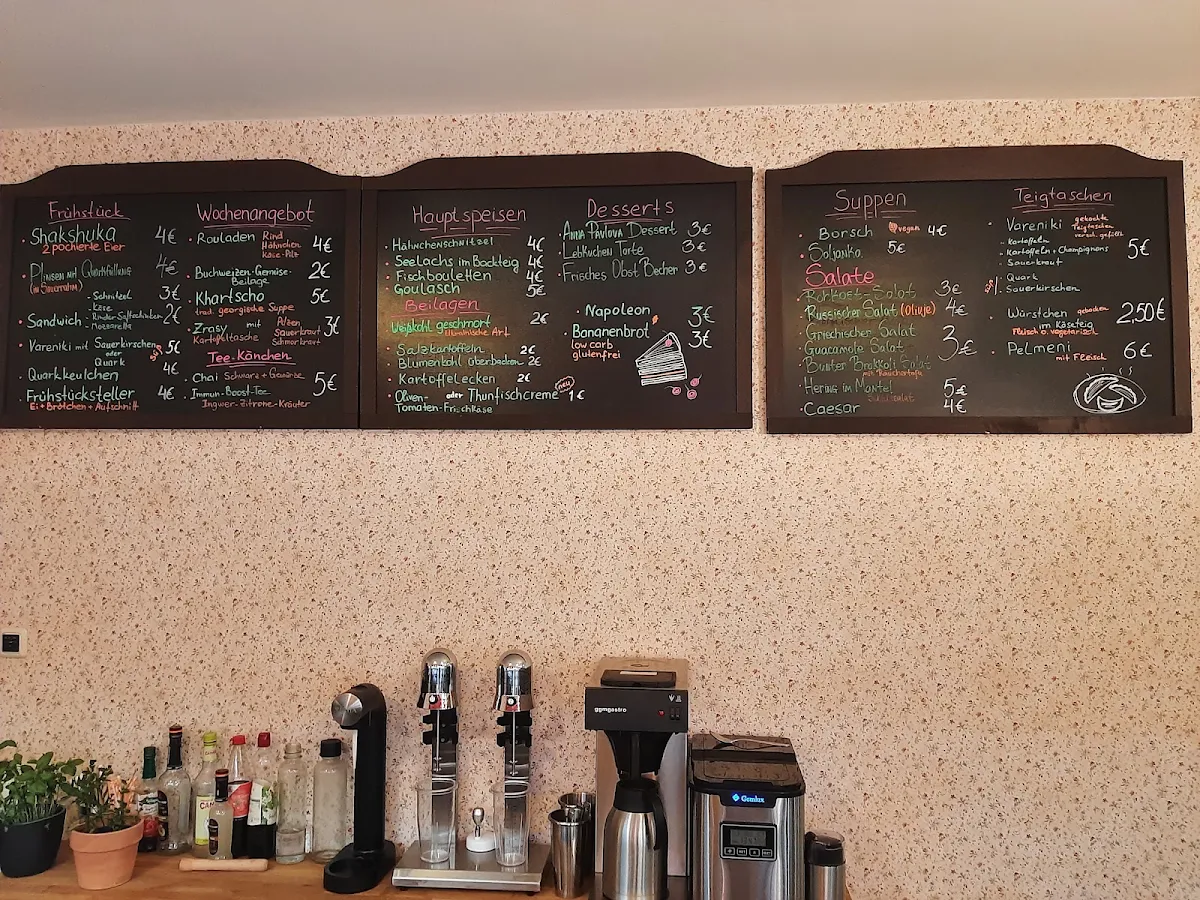 Frühstück
Shakshuka 4€
2 pochierte Eier
Plinsen mit Quarkfüllung 4€
- Schnitzel 3€
- Käse
Sandwich - Rinder-Saftschinken 2€
- Mozzarella
Vareniki mit Sauerkirschen 5€
oder
Quark süß
Quarkkeulchen 4€
Frühstücksteller 4€
Ei + Brötchen + Aufschnitt
Wochenangebot
Rouladen Rind 4€
Hähnchen
Käse-Pilz
Buchweizen-Gemüse- 2€
Beilage
Khartscho 5€
trad. georgische Suppe
Zrasy mit Pilzen 3€
Kartoffeltasche Sauerkraut
Schmorkraut
Tee-Känchen
Chai Schwarz + Gewürze 5€
Immun-Boost-Tee
Ingwer-Zitrone-Kräuter
Hauptspeisen
Hähnchenschnitzel 4€
Seelachs im Backteig 4€
Fischbouletten 4€
Goulasch 5€
Beilagen
Weißkohl geschmort 2€
Art
Salzkartoffeln 2€
Blumenkohl überbacken 2€
Kartoffelecken 2€
Oliven- oder Thunfischcreme neu 1€
Tomaten-Frischkäse
Desserts
Anna Pavlova Dessert 3€
Lebkuchen Torte 3€
Frisches Obst Becher 3€
Napoleon 3€
Bananenbrot 3€
low carb
glutenfrei
Suppen
Borsch vegan 4€
Soljanka 5€
Salate
Rohkost Salat 3€
Russischer Salat (Olivje) 4€
Griechischer Salat
Guacamole Salat 3€
Bunter Brokkoli Salat
mit Räuchertofu
Hering im Mantel 5€
Caesar 4€
Teigtaschen
Vareniki gekochte
Teigtaschen
versch. gefüllt
- Kartoffeln
- Kartoffeln + Champignons 5€
- Sauerkraut
süß - Quark
- Sauerkirschen
Würstchen gebacken 2,50€
im Käseteig
Fleisch o. vegetarisch
Pelmeni 6€
mit Fleisch
ggmgastro
Gemlux